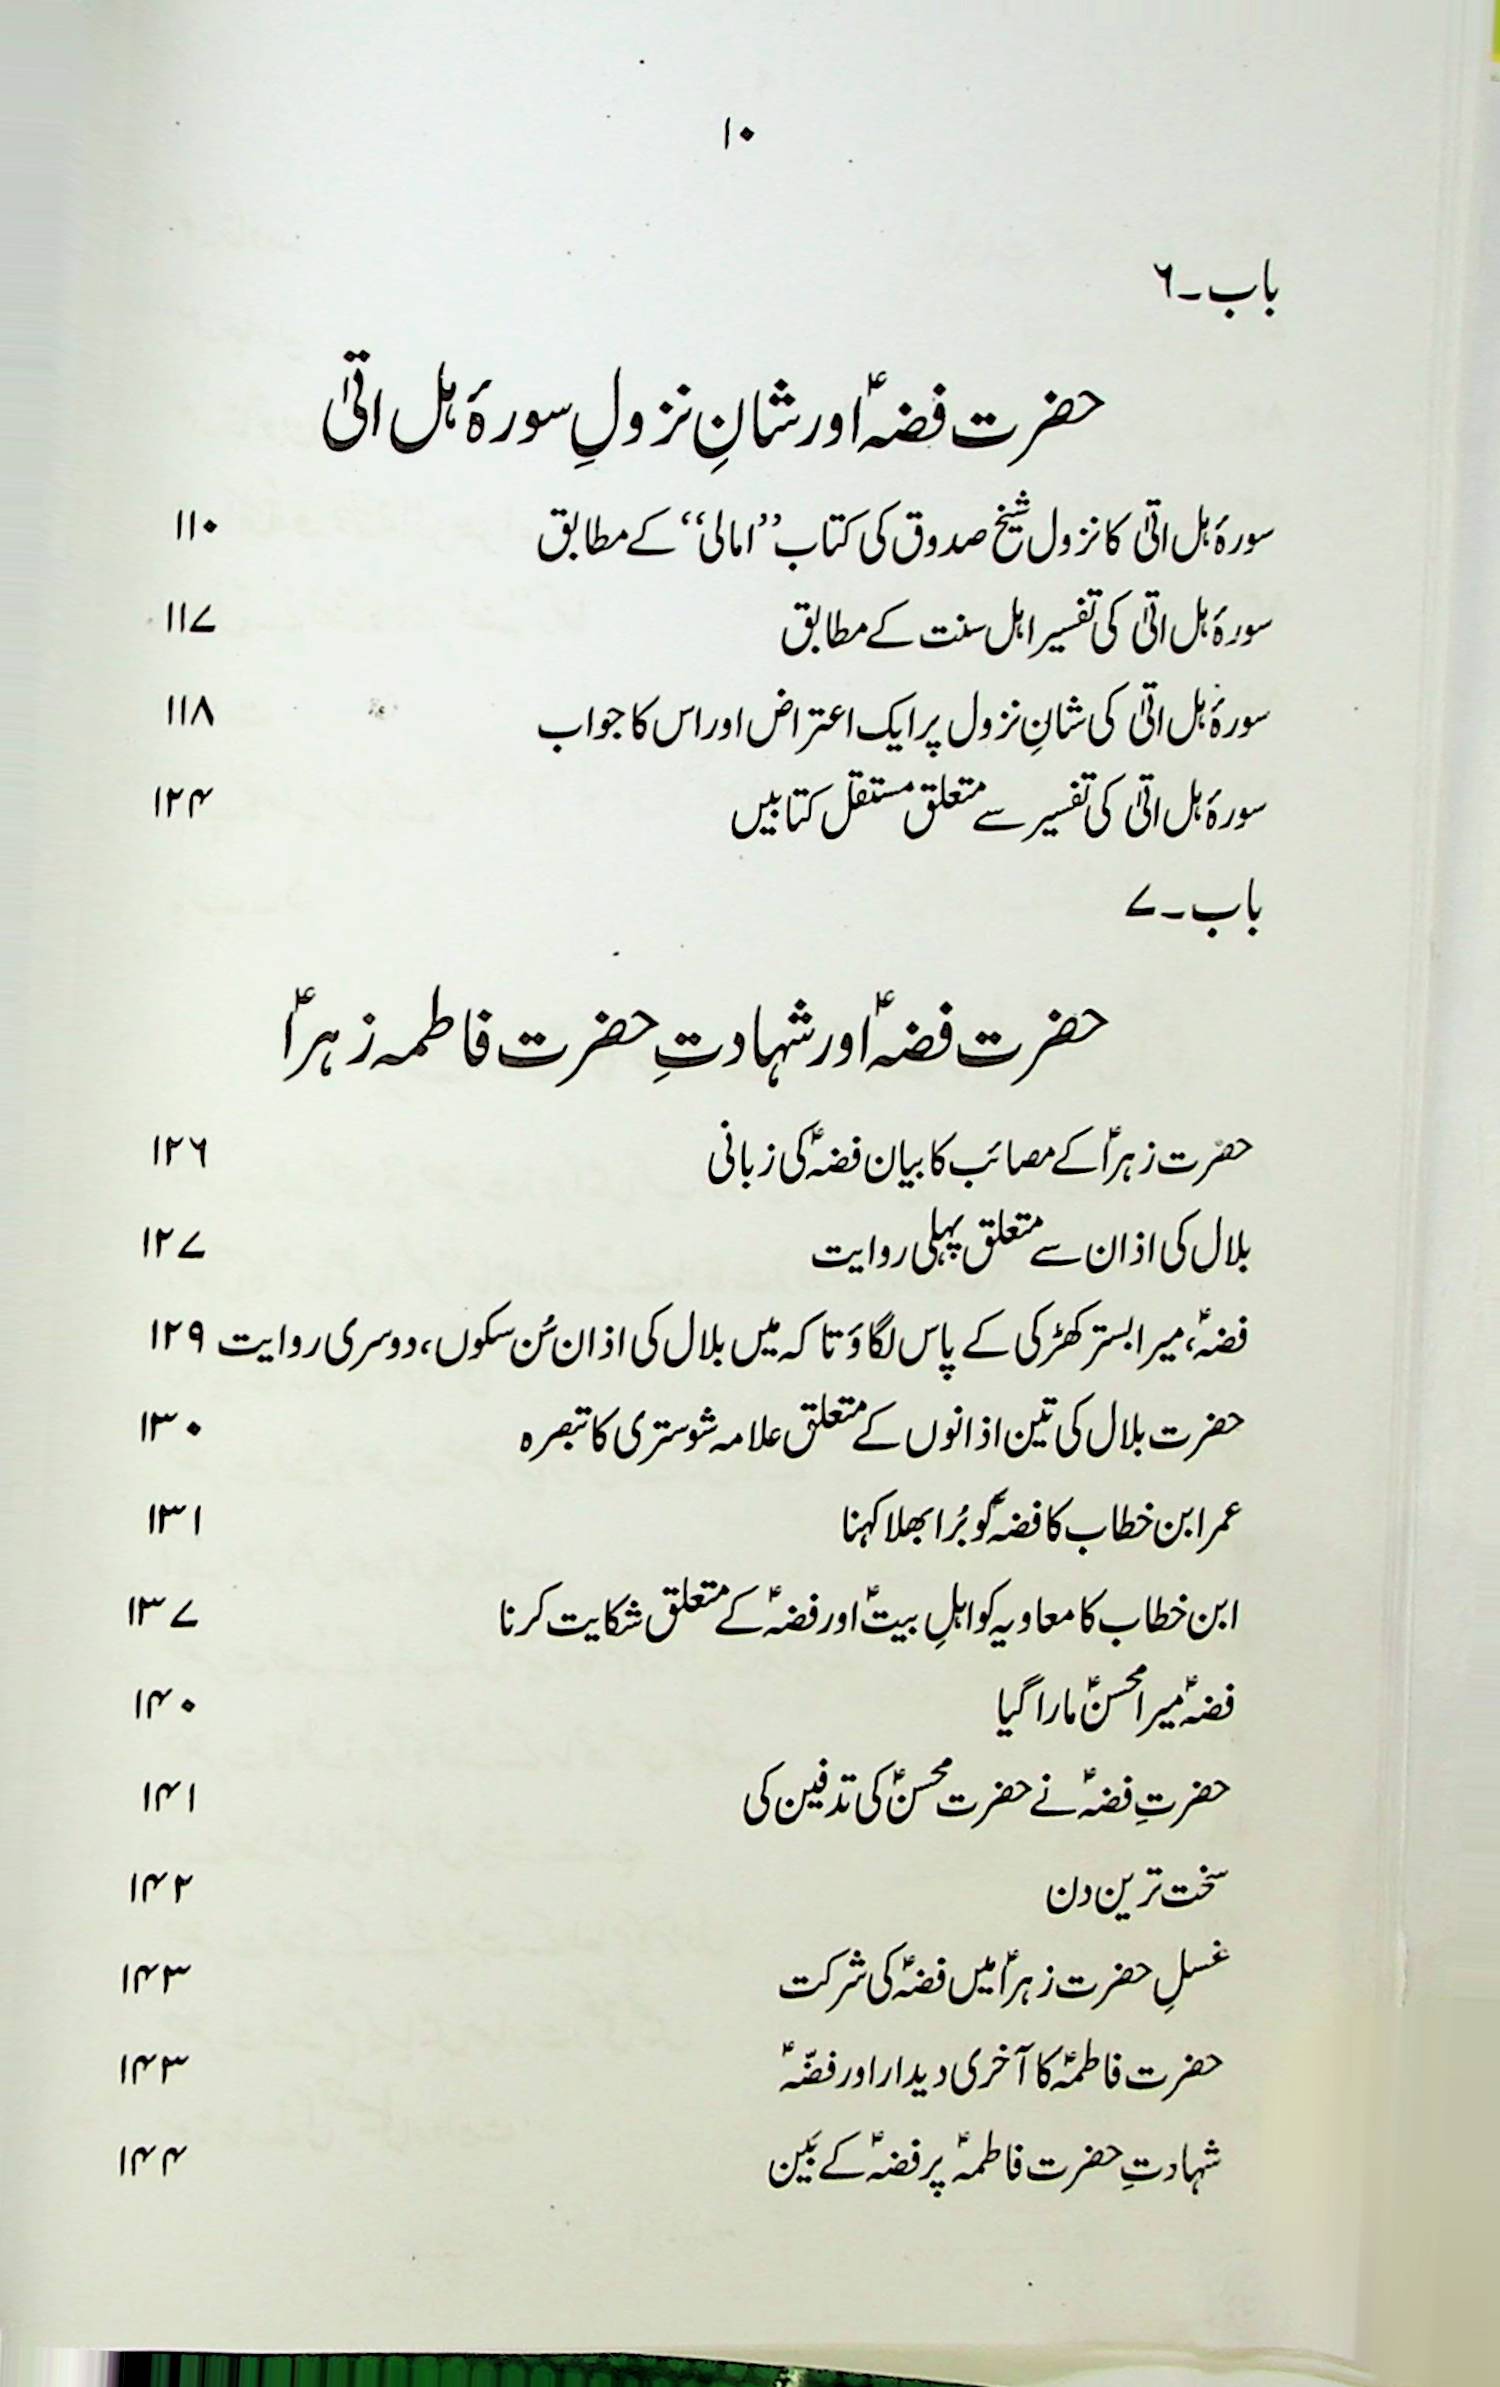 ۱۰
باب۔۶
حضرت فضہؑ اور شانِ نزولِ سورۂ ہل اتیٰ
سورۂ ہل اتیٰ کا نزول شیخ صدوق کی کتاب ”امالی“ کے مطابق ۱۱۰
سورۂ ہل اتیٰ کی تفسیر اہل سنت کے مطابق ۱۱۷
سورۂ ہل اتیٰ کی شانِ نزول پر ایک اعتراض اور اس کا جواب ۱۱۸
سورۂ ہل اتیٰ کی تفسیر سے متعلق مستقل کتابیں ۱۲۴
باب۔۷
حضرت فضہؑ اور شہادتِ حضرت فاطمہ زہراؑ
حضرت زہراؑ کے مصائب کا بیان فضہؑ کی زبانی ۱۲۶
بلال کی اذان سے متعلق پہلی روایت ۱۲۷
فضہؑ، میرا بستر کھڑکی کے پاس لگاؤ تا کہ میں بلال کی اذان سُن سکوں، دوسری روایت ۱۲۹
حضرت بلال کی تین اذانوں کے متعلق علامہ شوستری کا تبصرہ ۱۳۰
عمر ابن خطاب کا فضہؑ کو بُرا بھلا کہنا ۱۳۱
ابن خطاب کا معاویہ کو اہلِ بیتؑ اور فضہؑ کے متعلق شکایت کرنا ۱۳۷
فضہؑ میرا محسنؑ مارا گیا ۱۴۰
حضرتِ فضہؑ نے حضرت محسنؑ کی تدفین کی ۱۴۱
سخت ترین دن ۱۴۲
غسلِ حضرت زہراؑ میں فضہؑ کی شرکت ۱۴۳
حضرت فاطمہؑ کا آخری دیدار اور فضّہؑ ۱۴۳
شہادتِ حضرت فاطمہؑ پر فضہؑ کے بَین ۱۴۴